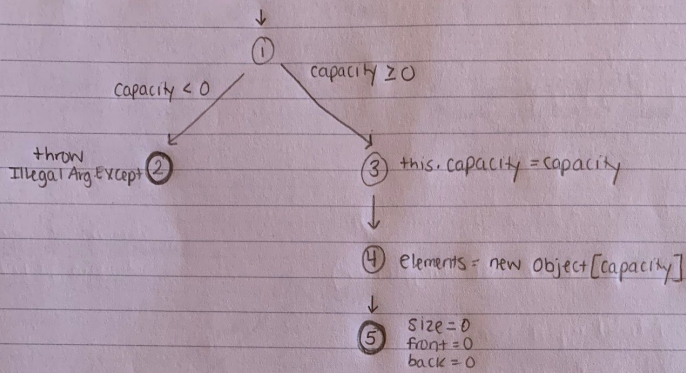 1
capacity < 0
capacity ≥ 0
throw
Illegal Arg.Except
2
3
this.capacity = capacity
4
elements = new Object[capacity]
5
size = 0
front = 0
back = 0